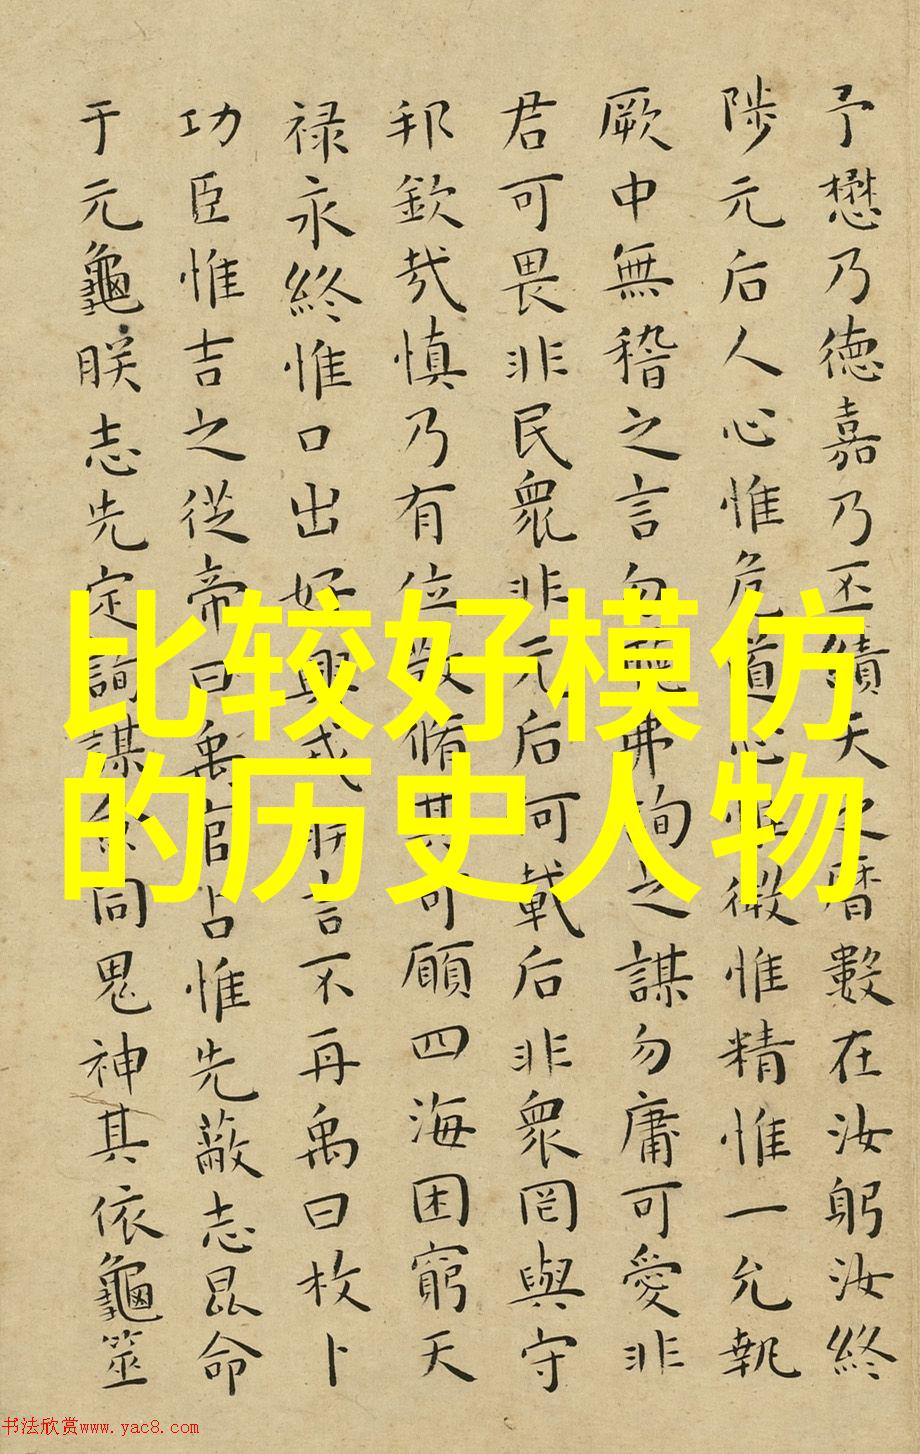 予懋乃德嘉乃丕績天之曆數在汝躬汝終
陟元后人心惟危道心惟微惟精惟一允執
厥中無稽之言勿聽弗詢之謀勿庸可愛非
君可畏非民衆非元后何載后非衆罔與守
邦欽哉慎乃有位敬脩其可願四海困窮天
禄永終惟口出好興戎朕言不再禹曰枚卜
功臣惟吉之從帝曰禹官占惟先蔽志昆命
于元龜朕志先定詢謀僉同鬼神其依龜筮
比较好模仿
的历史人物
书法欣赏www.yac8.com